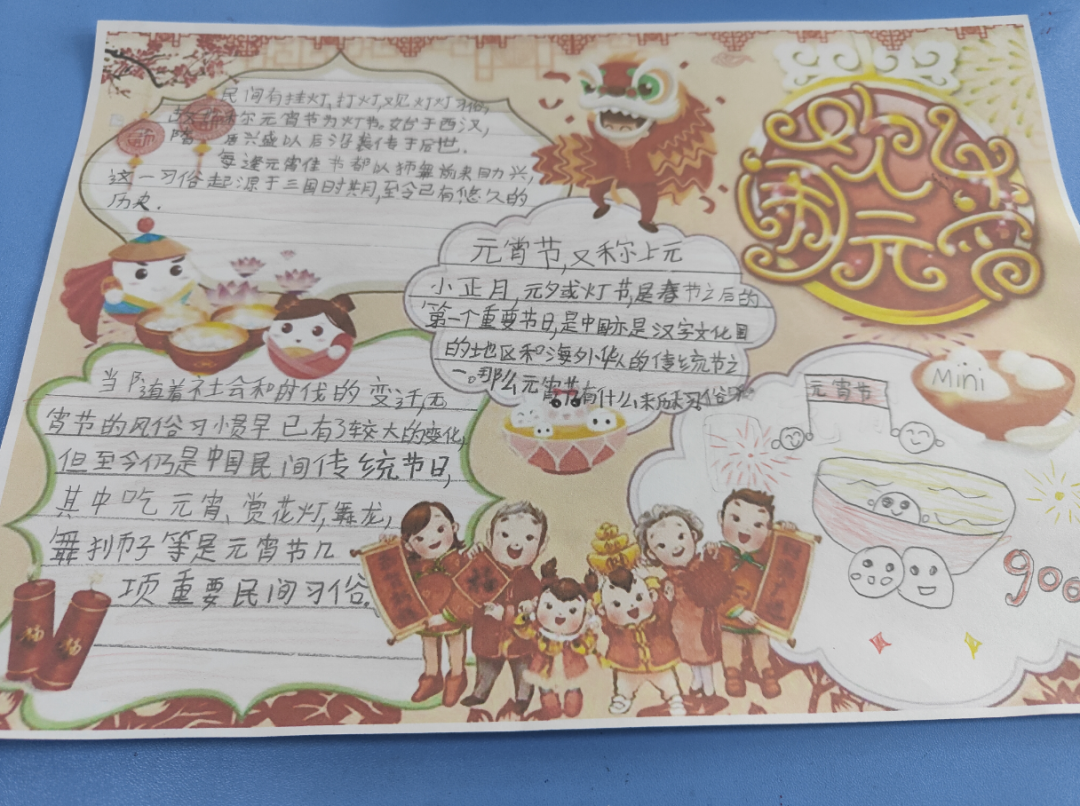 欢乐
闹元宵
民间有挂灯,打灯,观灯灯习俗,
故称尔元宵节为灯节。始于西汉,
隋唐兴盛以后沿袭传于后世.
每逢元宵佳节都以狮舞前来助兴,
这一习俗起源于三国时期,至今已有悠久的
历史.
元宵节,又称上元
小正月,元夕或灯节,是春节之后的
第一个重要节日,是中国亦是汉字文化国
的地区和海外华人的传统节之
一。那么元宵节有什么来历习俗
当随着社会和时代的变迁,元
宵节的风俗习惯早已有了较大的变化,
但至今仍是中国民间传统节日,
其中吃元宵、赏花灯,舞龙,
舞狮子等是元宵节几
项重要民间习俗.
元宵节
Mini
goo
福
福
福